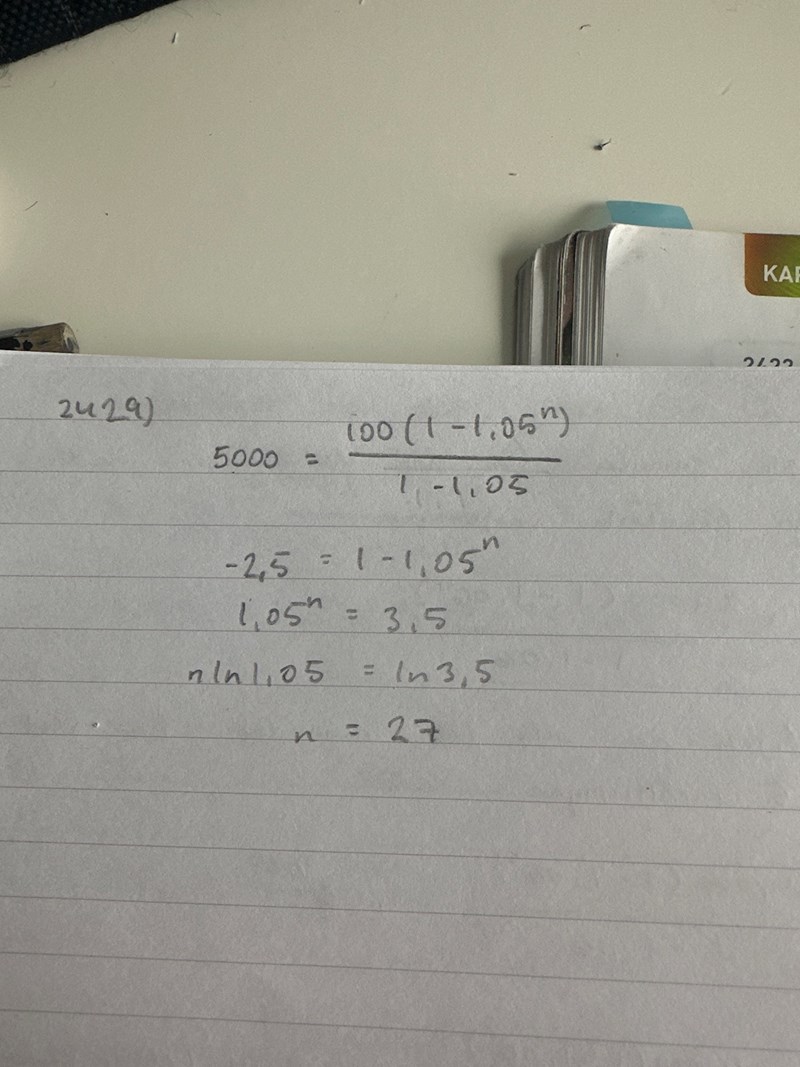 KAP
2429)
5000 = 100(1-1,05ⁿ) / 1-1,05
-2,5 = 1-1,05ⁿ
1,05ⁿ = 3,5
n ln 1,05 = ln 3,5
n = 27